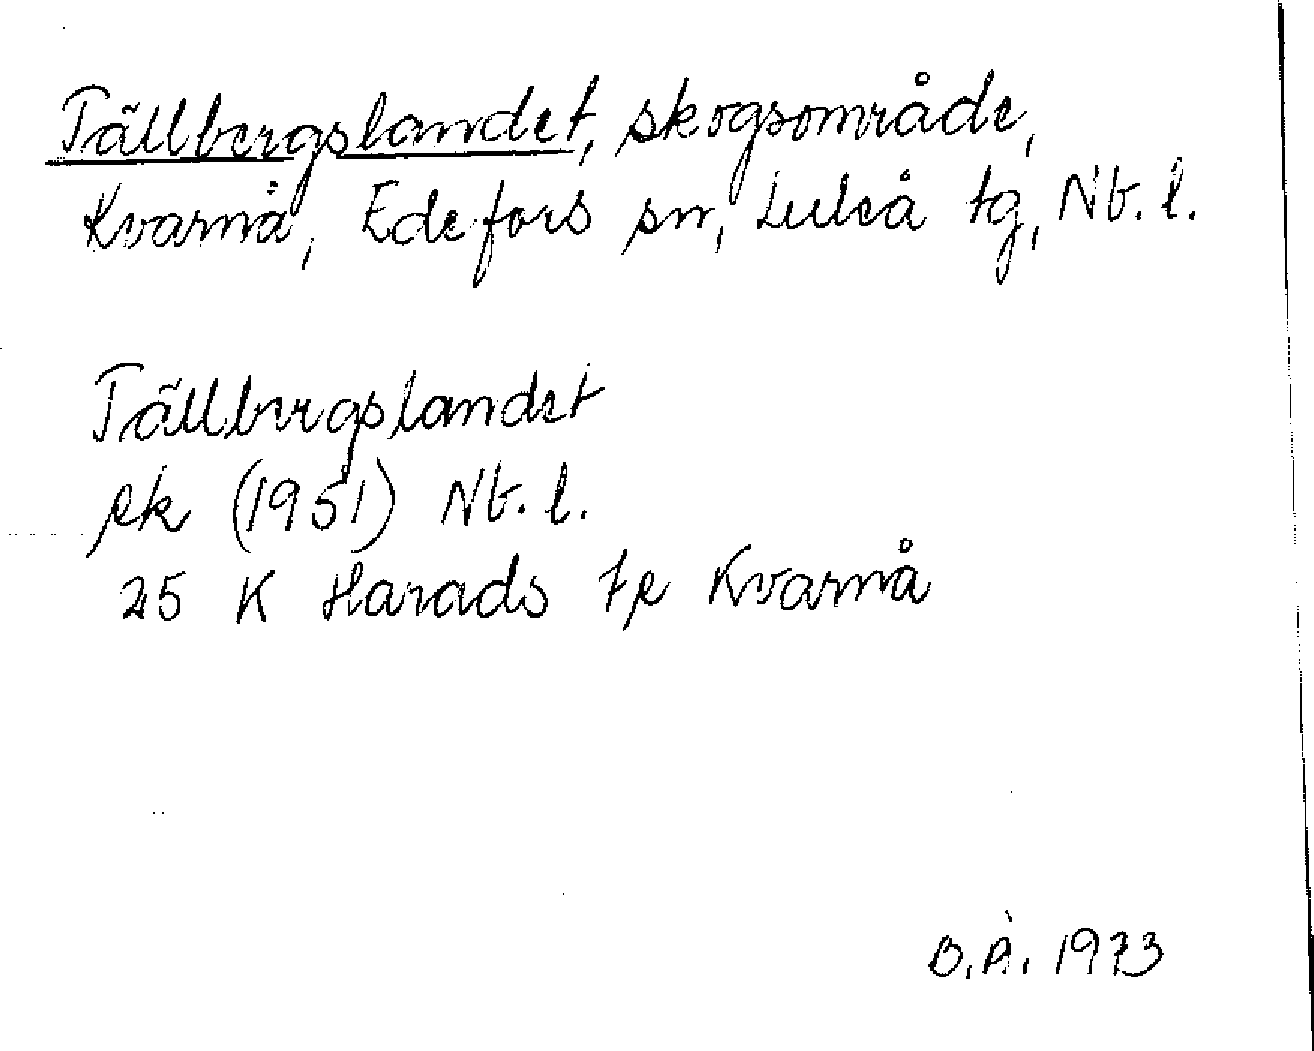 Tällbergslandet, skogsområde,
Kvarnå, Edefors sn, Luleå tg, Nt. l.
Tällbergslandet
ek (1951) Nt. l.
25 K Harads te Kvarnå
B.Å. 1973